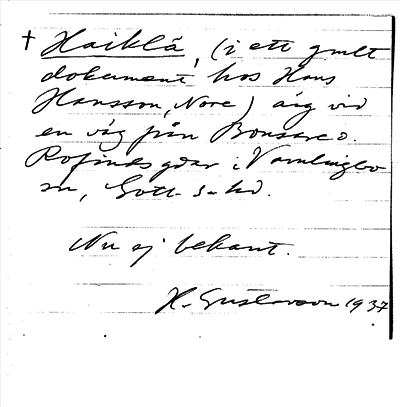 † Haiklå, (i ett gmlt
dokument hos Hans
Hansson, Nore) äng vid
en väg från Bonsarve o.
Rofinds gdar i Vamlingbo
sn, Gotl. s. hd.
Nu ej bekant.
H. Gustavson 1937